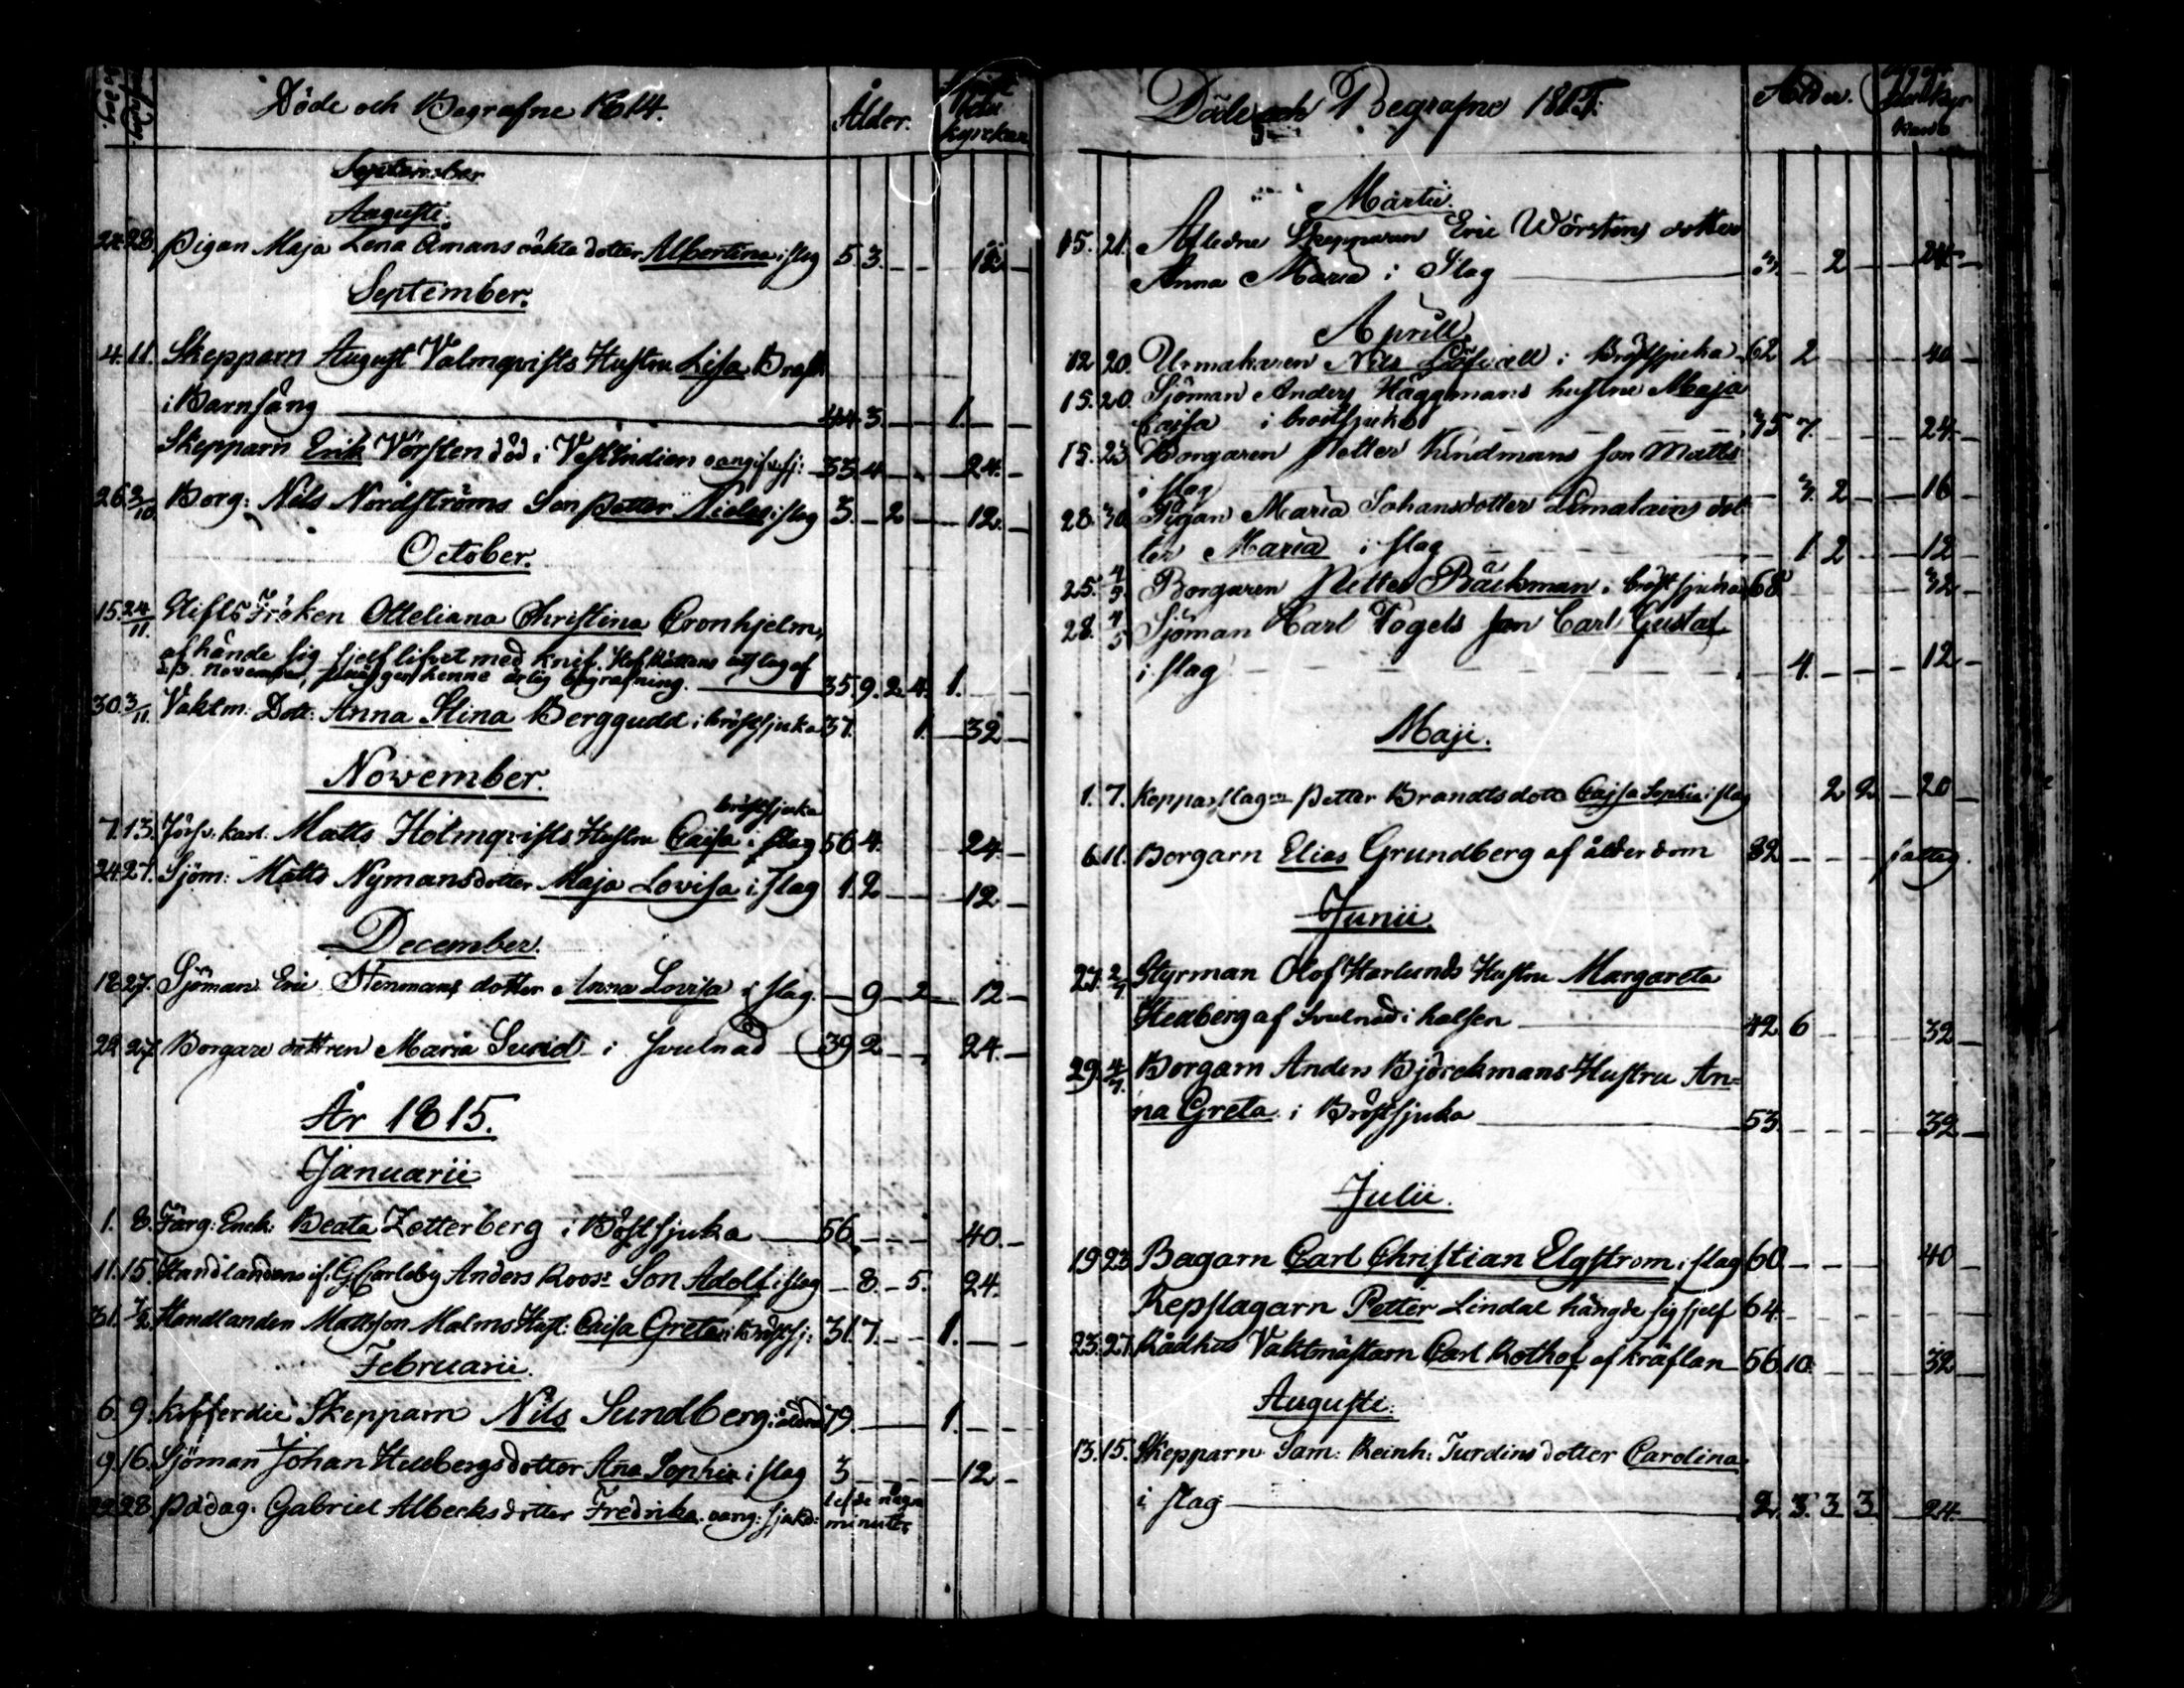 Döde och Begrafne 1814.
Ålder.
kyrckan
September
Augusti.
24. 28. Pigan Maja Lena Amans oäkta dotter Albertina i slag 5. 3. – – 12 –
September.
4. 11. Skepparn August Valmqvists Hustru Lisa
i Barnsäng 44. 3. – – 1. – –
Skepparn Erik Vörsten död i Vest Indien oangifv. sj: 33. 4 – – 24. –
26. 2/10. Borg: Nils Nordströms Son Petter Niclas i slag 3. – 2 – – 12. –
October.
15. 24/11. Stifts Fröken Otteliana Christina Cronhjelm,
afhände sig sjelf lifvet med knif. Hof Rättens utslag af
d. 3. November, henne ärlig begrafning. 35. 9. 2. 4. 1. – –
30. 3/11. Vaktm: Dott: Anna Stina Berggudd i bröstsjuka 37. 1. – 32 –
November.
bröstsjuka
7. 13. karl. Matts Holmqvists Hustru Caisa i slag 56. 4. 24. –
24. 27. Sjöm: Matts Nymans dotter Maja Lovisa i slag 1. 2 – – 12 –
December.
18. 27. Sjöman Eric Stenmans dotter Anna Lovisa i slag. – 9 – 2 – 12 –
22. 27. Borgare dottren Maria Sund i svulnad 39 2 – – 24. –
År 1815.
Januarii
1. 8. Färg: Enck: Beata Zetterberg i Bröstsjuka 56. – – – 40. –
11. 15. Handlandens if. G:Carleby Anders Roos: Son Adolf i slag – 8. – 5. 24.
31. 7/2. Handlanden Mattsson Malms Hust: Caisa Greta i Bröstsj: 31. 7. – – 1. – –
Februarii.
6. 9. Kofferdie Skepparn Nils Sundberg i ålderd 79. 1. – –
9. 16. Sjöman Johan Hedbergs dotter Ana Sophia i slag 3 – – – 12 –
22. 28. Pädag: Gabriel Albecks dotter Fredrika oang: sjukd: lefde några
minuter
Döde och Begrafne 1815.
Ålder.
Martii.
15. 21. Afledne Skepparen Eric Wörstens dotter
Anna Maria i Slag 3. – 2 – – 24. –
Aprill.
12 20. Urmakaren Nils Löfvall i Bröstsjuka 62 2 40 –
15. 20. Sjöman Anders Häggmans hustru Maja
Caisa i bröstsjuka 35 7. – – 24. –
15. 23 Borgaren Petter Kindmans son Matts
i slag – 3. 2 – – 16 –
28. 30. Pigan Maria Johansdotter dot
ter Maria i slag – 1 2 – – 12 –
25. 4/5. Borgaren Petter Bäckman i bröstsjuka 68 32 –
28. 4/5 Sjöman Karl Vogels son Carl Gustaf
i slag – 4. – – – 12 –
Maji.
1. 7. Kopparslag:n Petter Brandts dott: Cajsa Sophia i slag 2 2 – 20 –
6. 11. Borgarn Elias Grundberg af ålderdom 82 – – – fattig.
Junii.
27. 2/7. Styrman Olof Harlunds Hustru Margareta
Hedberg af Svulnad i halsen 42 6 – – – 32 –
29. 4/7. Borgarn Anders Björckmans Hustru An=
na Greta i Bröstsjuka 53. – – – – 32 –
Julii.
19. 23. Bagarn Carl Christian Elgstrom i slag 60. – – – 40 –
Repslagarn Petter Lindal hängde sig sjelf 64. – – – –
23. 27. Rådhus Vaktmästarn Carl Rothof af kräftan 56. 10. – – 32 –
Augusti.
13. 15. Skepparn Sam: Reinh: Jurdins dotter Carolina
i slag 2. 3. 3 3 24. –